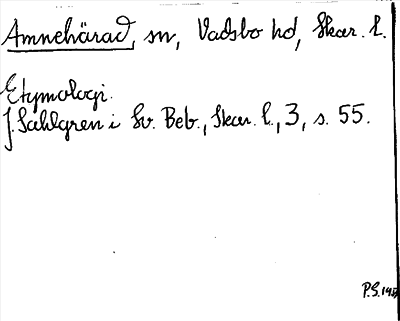 Amnehärad, sn, Vadsbo hd, Skar. l.
Etymologi.
J. Sahlgren i Sv. Beb., Skar. l., 3, s. 55.
P.S.